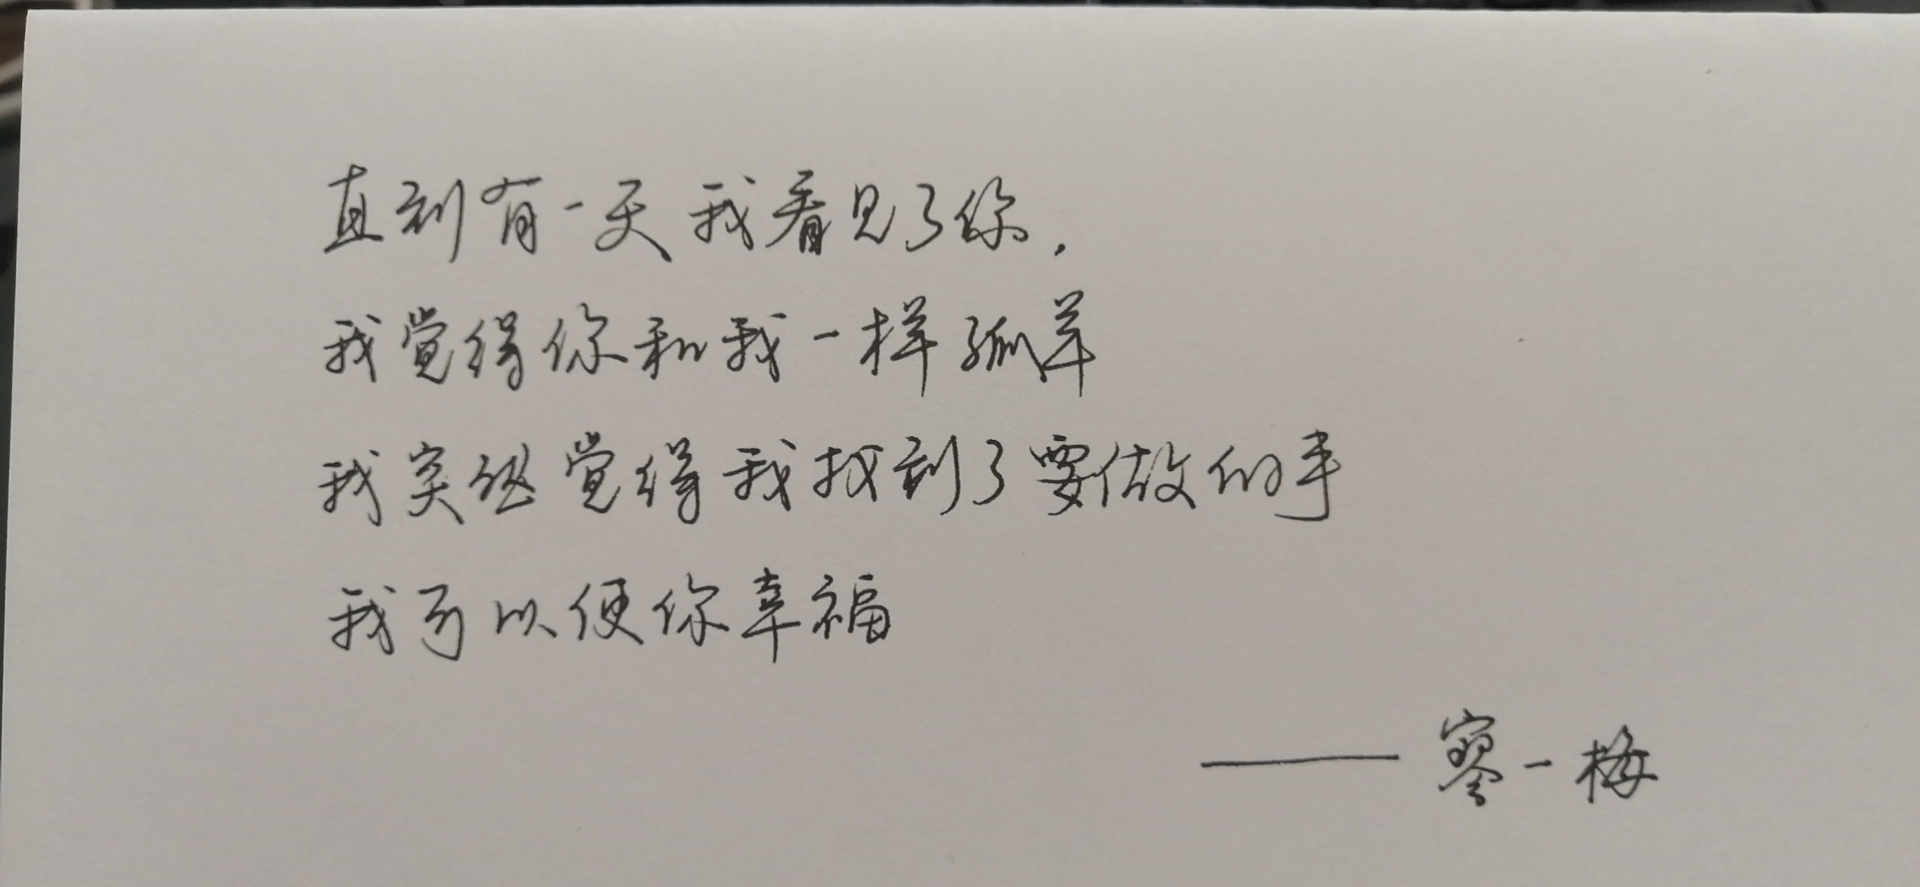 直到有一天我看见了你，
我觉得你和我一样孤单
我突然觉得我找到了要做的事
我可以使你幸福
——寥一梅